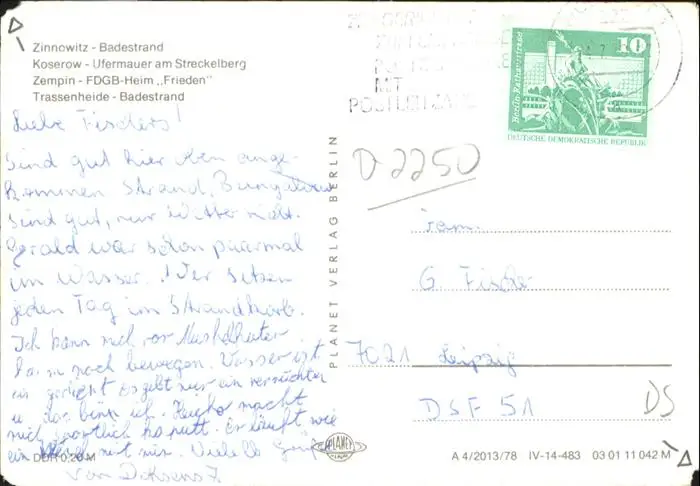 Zinnowitz - Badestrand
Koserow - Ufermauer am Streckelberg
Zempin - FDGB-Heim „Frieden"
Trassenheide - Badestrand
Liebe Fischers!
Sind gut hier oben ange-
kommen. Strand, Bungalow
sind gut, nur Wetter nicht.
Gerald war schon paarmal
im Wasser. Wir sitzen
jeden Tag im Strandkorb.
Ich kann mich vor Muskelkater
kaum noch bewegen. Wasser ist
es gibt nur ein verrückter
u. das bin ich. macht
mich sportlich kaputt. Er läuft wie
ein mit mir. Viele lb. Grüße
von
DDR 0,20 M
PLANET VERLAG BERLIN
PLANET
MIT
POSTLEITZAHL
10
Berlin-Rathausstrasse
DEUTSCHE DEMOKRATISCHE REPUBLIK
D 2250
Fam.
G. Fischer
7021 Leipzig
DSF 51
DS
A 4/2013/78 IV-14-483 03 01 11 042 M